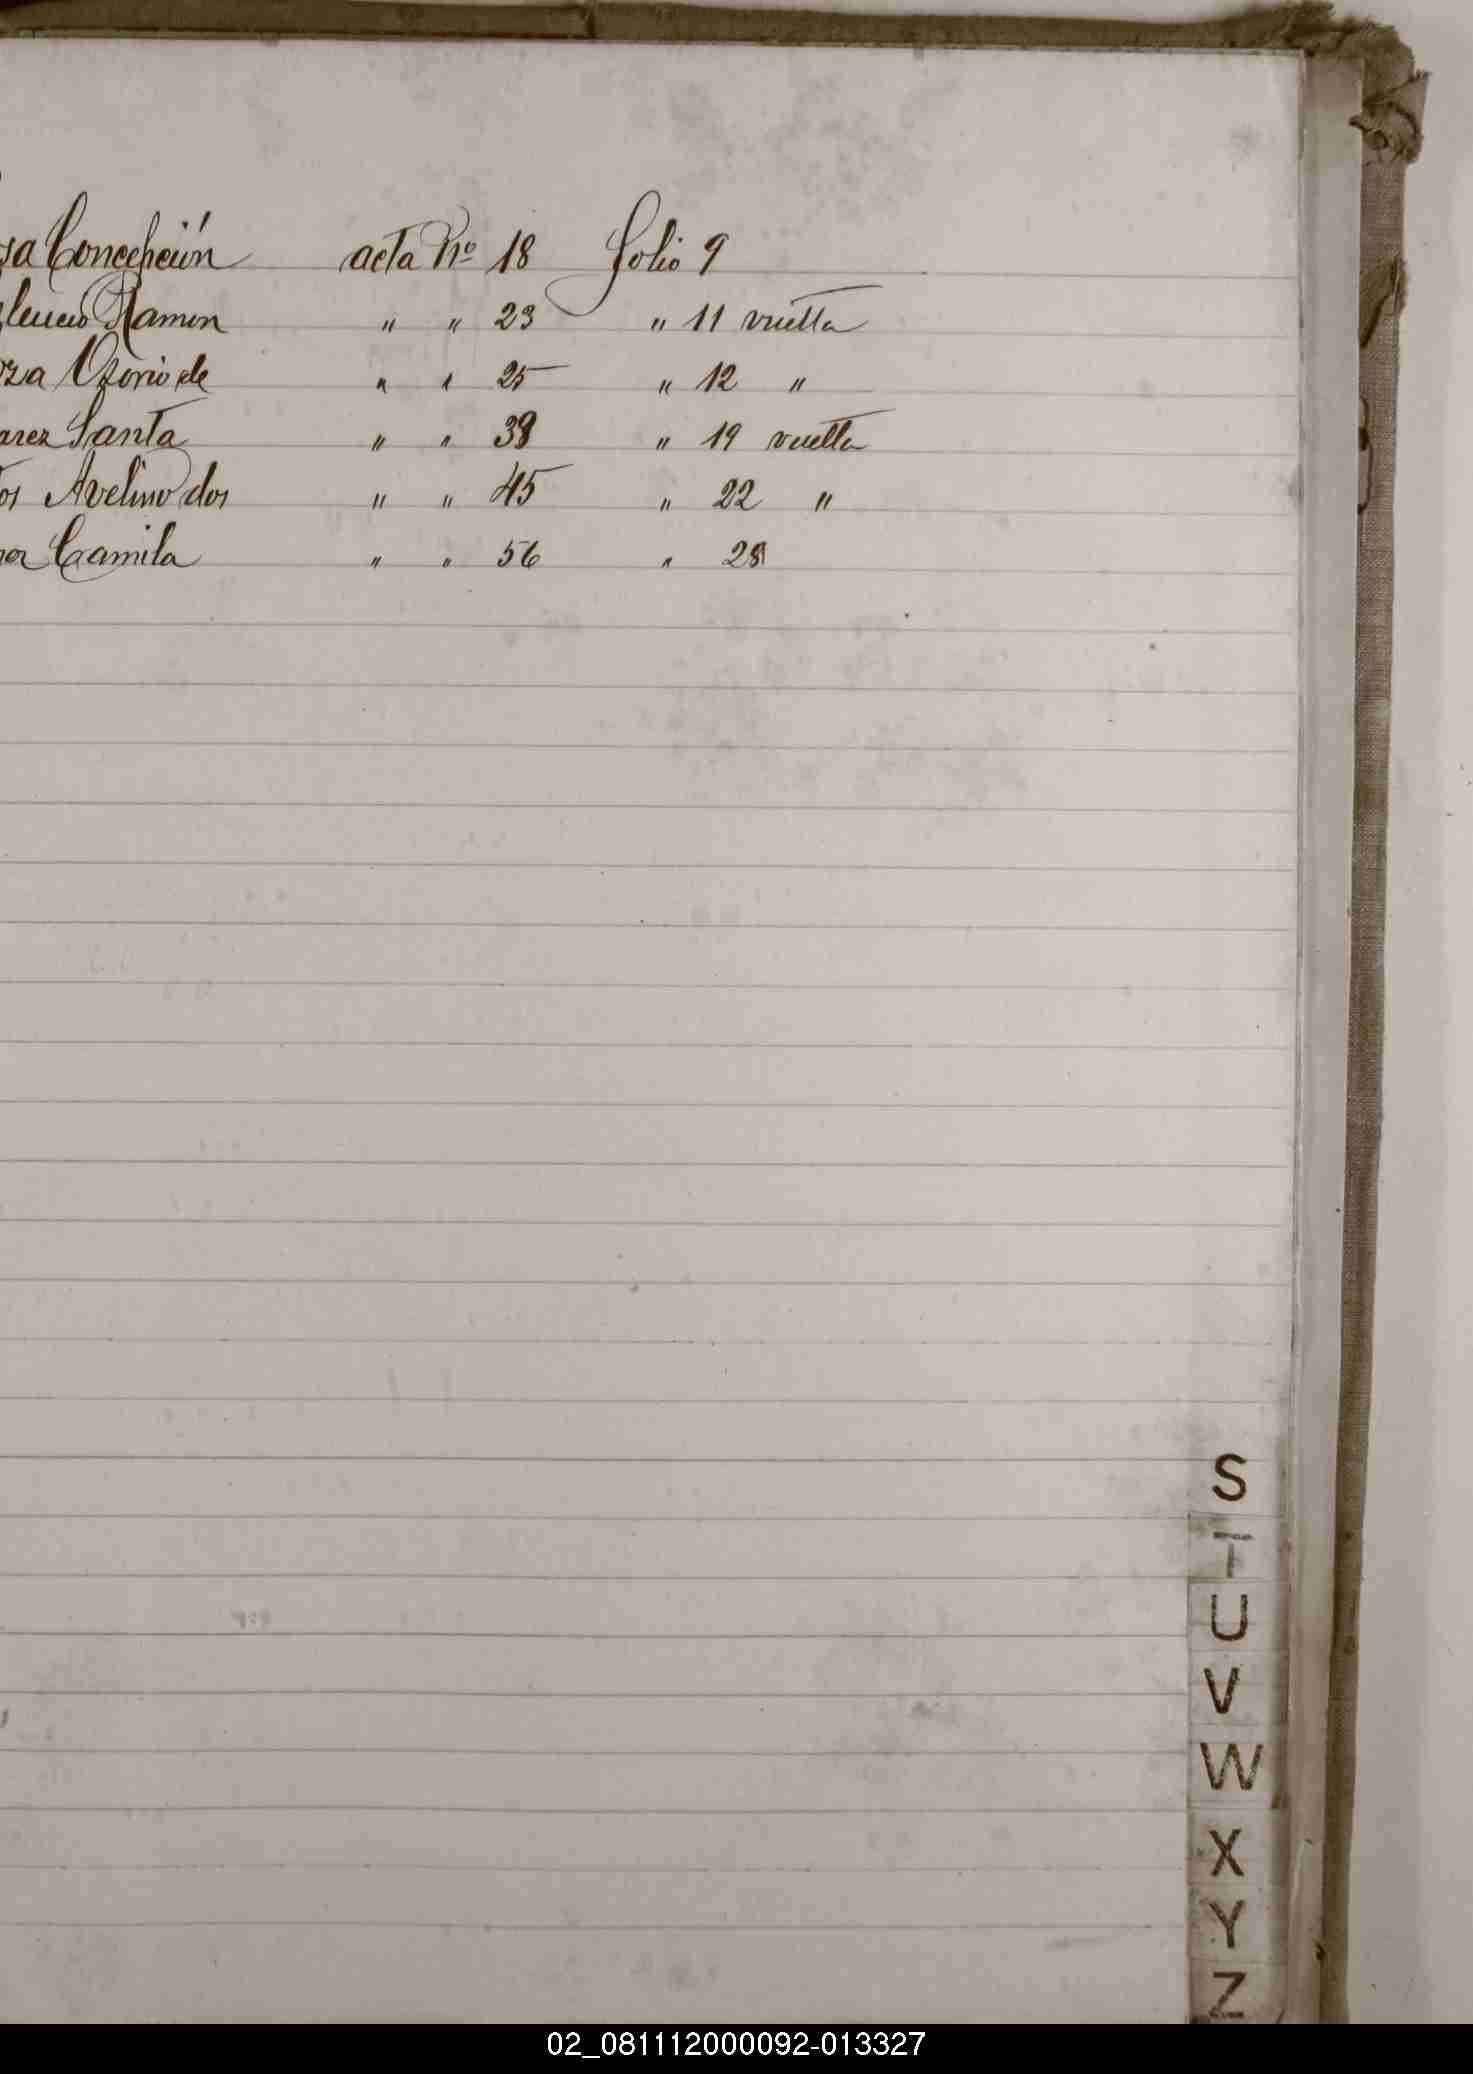 sa Concepción acta Nº 18 folio 9
Ramon " " 23 " 11 vuelta
oza Osorio de " " 25 " 12 "
arez Santa " " 38 " 19 vuelta
tos Avelino dos " " 45 " 22 "
Camila " " 56 " 28
S
T
U
V
W
X
Y
Z
02_081112000092-013327